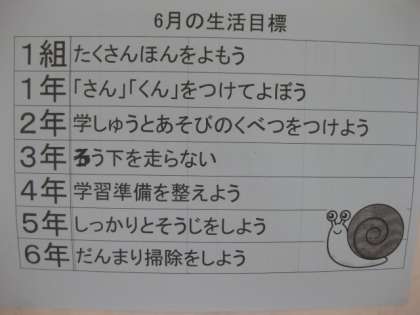 6月の生活目標
1組 たくさんほんをよもう
1年 「さん」「くん」をつけてよぼう
2年 学しゅうとあそびのくべつをつけよう
3年 ろう下を走らない
4年 学習準備を整えよう
5年 しっかりとそうじをしよう
6年 だんまり掃除をしよう